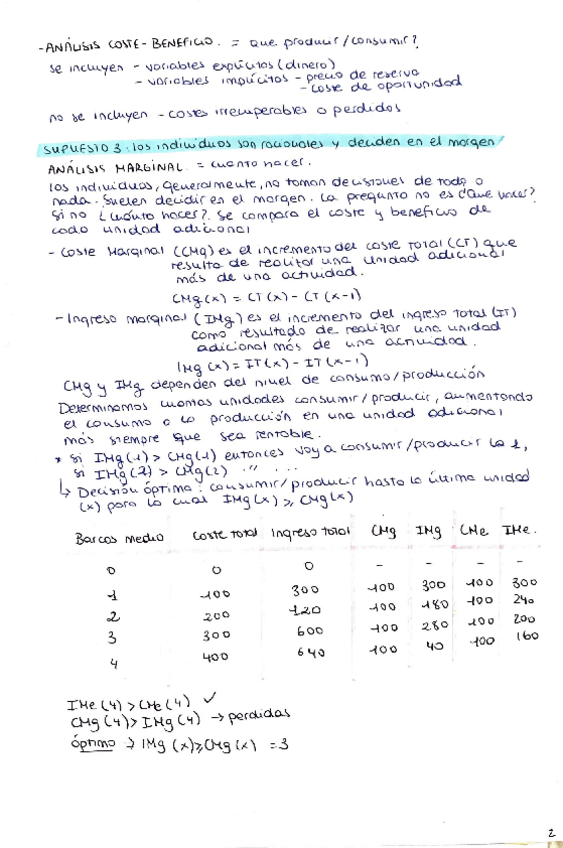 -ANÁLISIS COSTE-BENEFICIO. = que producir/consumir?
se incluyen - variables explícitos (dinero)
- variables implícitos - precio de reserva
- coste de oportunidad
no se incluyen - costes irrecuperables o perdidos
SUPUESTO 3: los individuos son racionales y deciden en el margen
ANÁLISIS MARGINAL = cuanto hacer.
los individuos, generalmente, no toman decisiones de todo o
nada. Suelen decidir en el margen. La pregunta no es ¿Qué hacer?
si no ¿cuánto hacer?. Se compara el coste y beneficio de
cada unidad adicional
- Coste Marginal (CMg) es el incremento del coste total (CT) que
resulta de realizar una unidad adicional
más de una actividad.
CMg(x) = CT(x) - CT(x-1)
- Ingreso marginal (IMg) es el incremento del ingreso total (IT)
como resultado de realizar una unidad
adicional más de una actividad.
IMg(x) = IT(x) - IT(x-1)
CMg y IMg dependen del nivel de consumo/producción
Determinamos cuantas unidades consumir/producir, aumentando
el consumo o la producción en una unidad adicional
más siempre que sea rentable.
* si IMg(1) > CMg(1) entonces voy a consumir/producir la 1,
si IMg(2) > CMg(2) " " ...
↳ Decisión óptima: consumir/producir hasta la última unidad
(x) para la cual IMg(x) ≥ CMg(x)
Barcos medio Coste total Ingreso total CMg IMg CMe IMe.
0 0 0 - - - -
1 100 300 100 300 100 300
2 200 120 100 180 100 240
3 300 600 100 280 100 200
4 400 640 100 40 100 160
IMe(4) > CMe(4) ✓
CMg(4) > IMg(4) → perdidas
óptimo → IMg(x) ≥ CMg(x) = 3
2